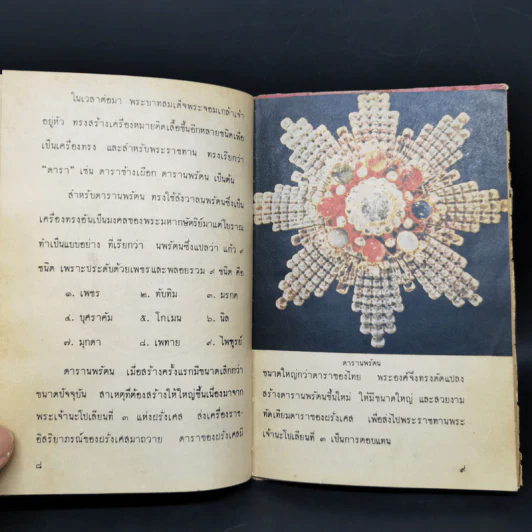 ในเวลาต่อมา พระบาทสมเด็จพระจอมเกล้าเจ้า
อยู่หัว ทรงสร้างเครื่องหมายติดเสื้อขึ้นอีกหลายชนิดเพื่อ
เป็นเครื่องทรง และสำหรับพระราชทาน ทรงเรียกว่า
"ดารา" เช่น ดาราช้างเผือก ดารานพรัตน เป็นต้น
สำหรับดารานพรัตน ทรงใช้สังวาลนพรัตนซึ่งเป็น
เครื่องทรงอันเป็นมงคลของพระมหากษัตริย์มาแต่โบราณ
ทำเป็นแบบอย่าง ที่เรียกว่า นพรัตนซึ่งแปลว่า แก้ว ๙
ชนิด เพราะประดับด้วยเพชรและพลอยรวม ๙ ชนิด คือ
๑. เพชร ๒. ทับทิม ๓. มรกต
๔. บุศราคัม ๕. โกเมน ๖. นิล
๗. มุกดา ๘. เพทาย ๙. ไพฑูรย์
ดารานพรัตน เมื่อสร้างครั้งแรกมีขนาดเล็กกว่า
ขนาดปัจจุบัน สาเหตุที่ต้องสร้างให้ใหญ่ขึ้นเนื่องมาจาก
พระเจ้านะโปเลียนที่ ๓ แห่งฝรั่งเศส ส่งเครื่องราช-
อิสริยาภรณ์ของฝรั่งเศสมาถวาย ดาราของฝรั่งเศสมี
๘
ดารานพรัตน
ขนาดใหญ่กว่าดาราของไทย พระองค์จึงทรงดัดแปลง
สร้างดารานพรัตนขึ้นใหม่ ให้มีขนาดใหญ่ และสวยงาม
ทัดเทียมดาราของฝรั่งเศส เพื่อส่งไปพระราชทานพระ
เจ้านะโปเลียนที่ ๓ เป็นการตอบแทน
๙